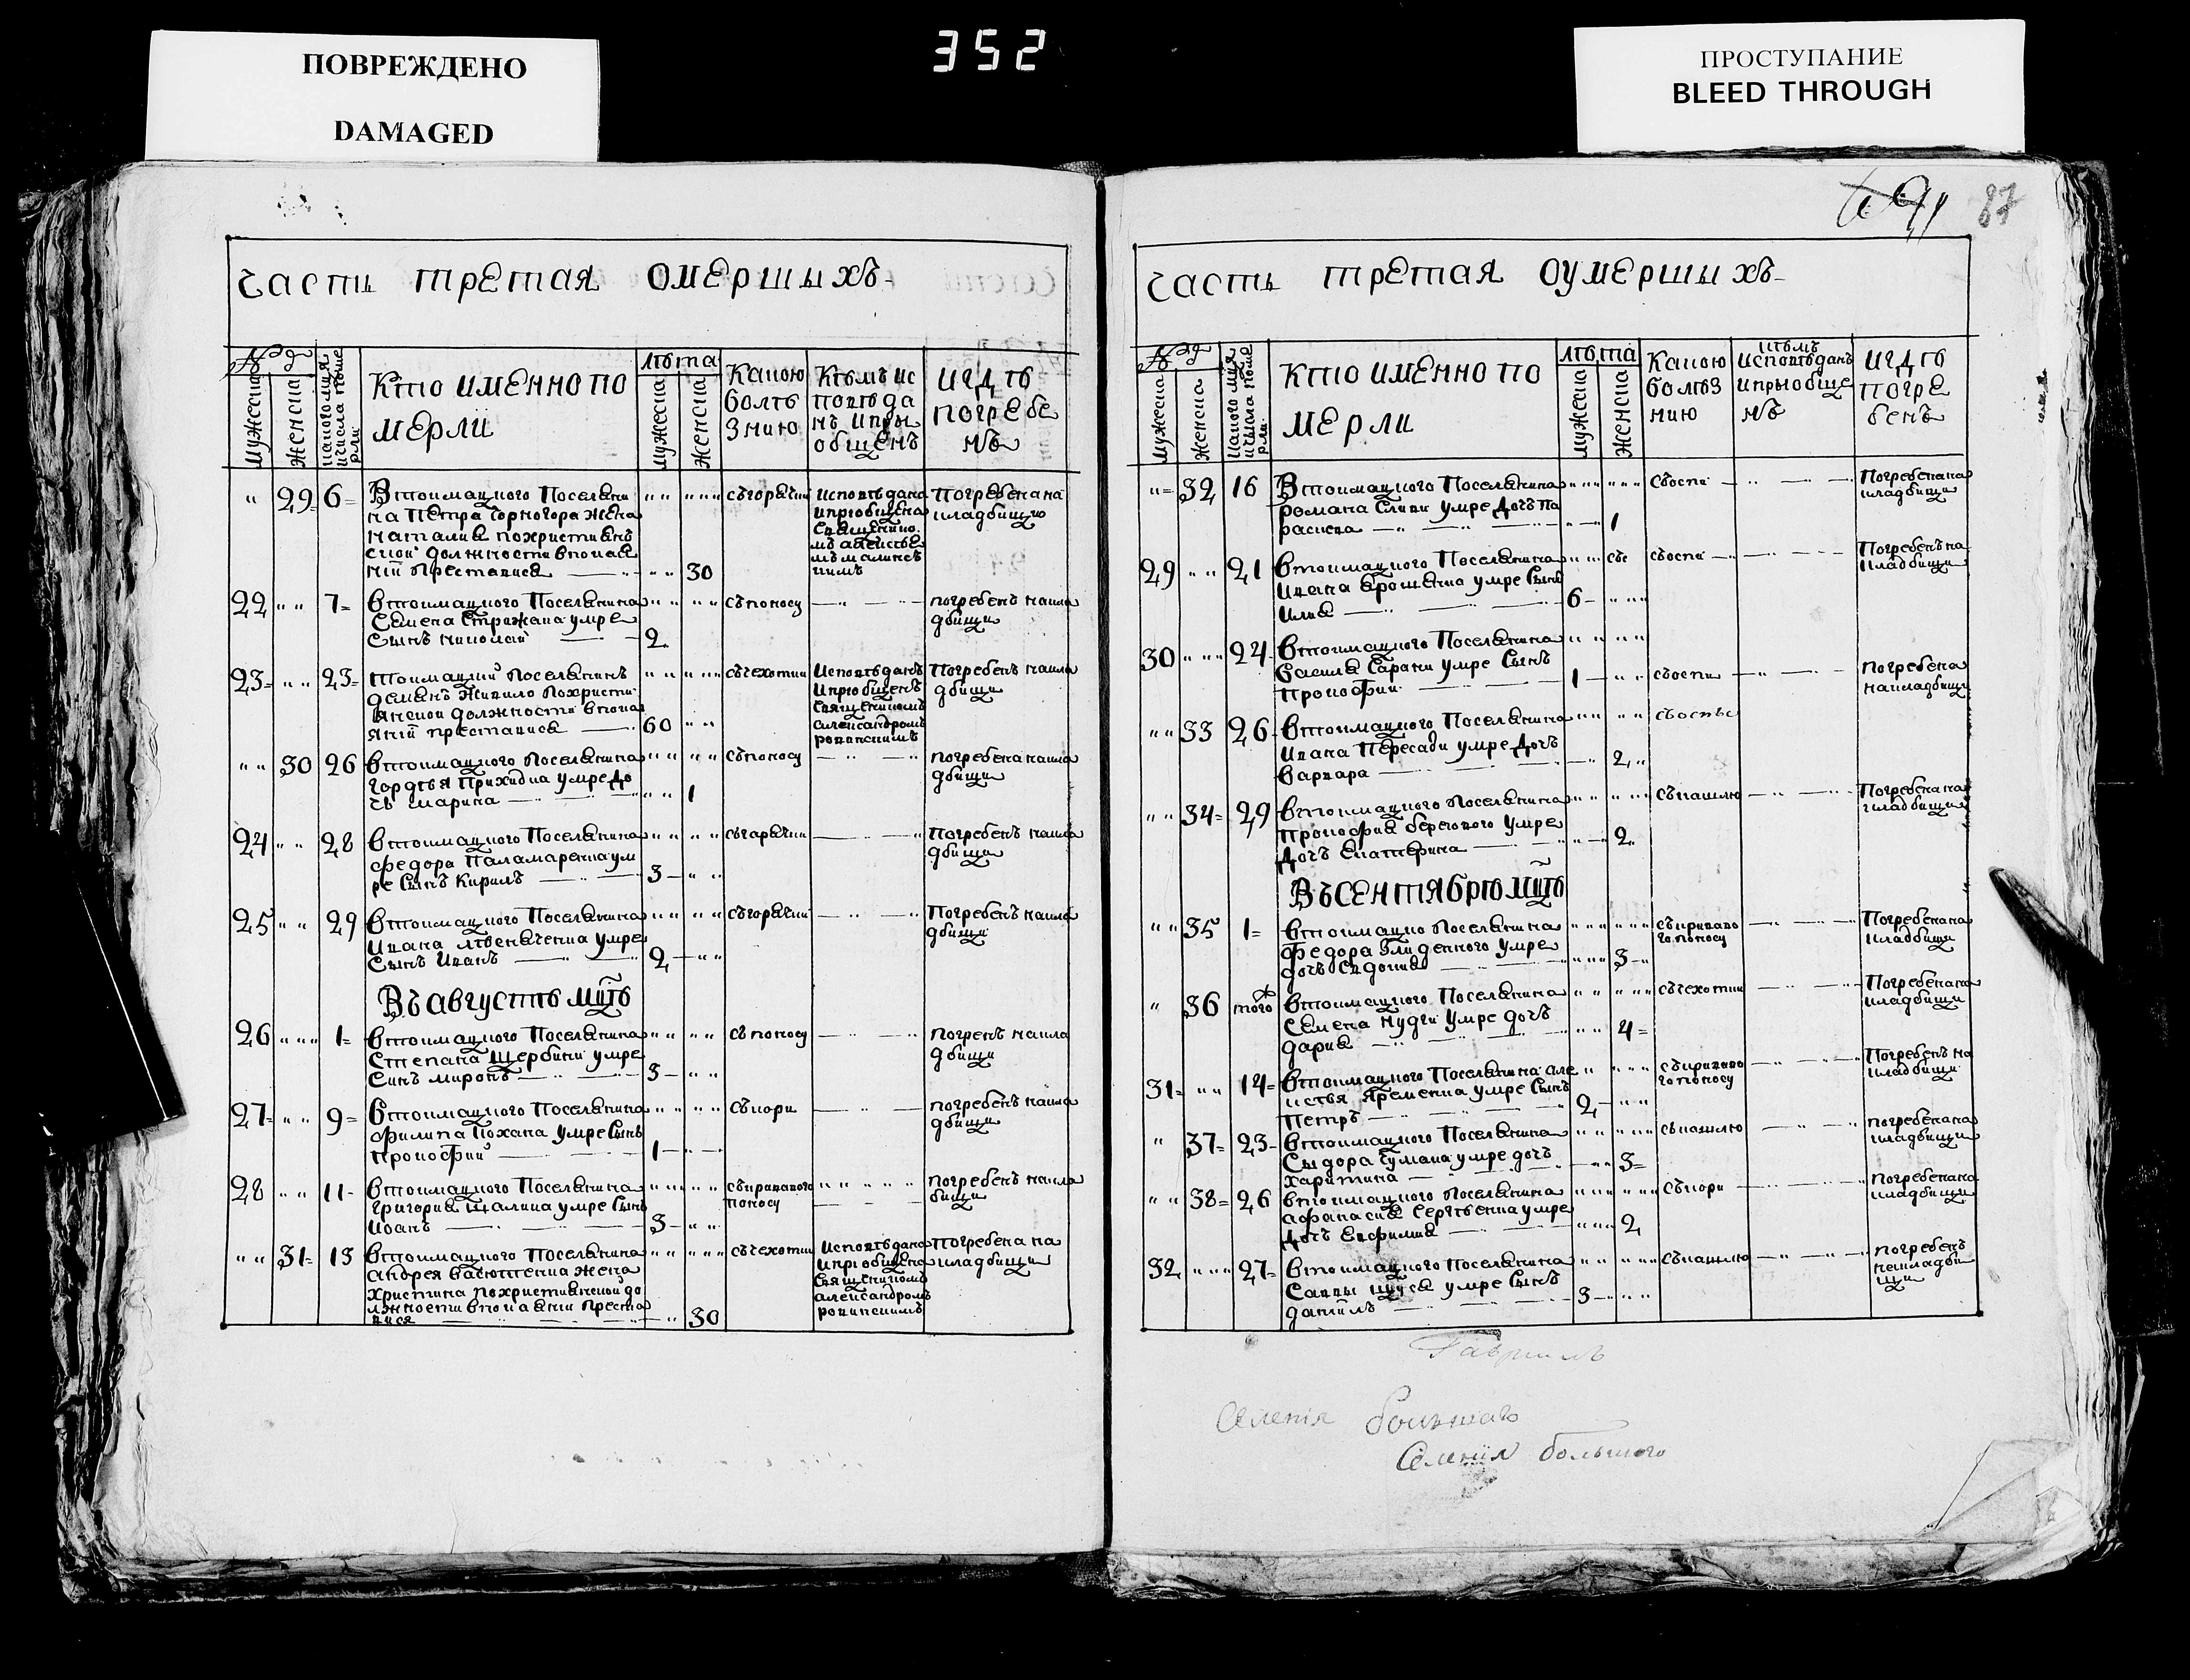 ПОВРЕЖДЕНО
DAMAGED
352
ПРОСТУПАНИЕ
BLEED THROUGH
87
Часть третая омершихъ
№
мужеска
женска
лѣта
Кто именно по
мерли
мужеска
женска
Какою
болѣ
знию
Кѣмъ ис
повѣда
нъ и прі
общенъ
игдѣ
погребе
нъ
29 6
Втокмацкого Поселяни
на Петра Чорногора жена
Наталия похристиянъ
ской должности впокая
ніи преставися
30
съгорячки
Исповѣдана
ипріобщена
Погребена на
кладбищю
22 7
втокмацкого Поселянина
Семена Стрижака умре
Сынъ Николай
2
съпоносу
погребенъ накла
дбищи
23 23
токмацкий Поселянинъ
Демянъ Живило похристи
янской должности впока
яніи преставися
60
съчехотки
Исповѣданъ
ипріобщенъ
Священикомъ
Александромъ
Погребенъ накла
дбищи
30 26
втокмацкого Поселянина
Гордѣя Приходка умре до
чъ Марина
1
съпоносу
погребена накла
дбищи
24 28
втокмацкого Поселянина
Федора Паламаренка ум
ре Сынъ Кирилъ
3
съгарячки
Погребенъ накла
дбищи
25 29
втокмацкого Поселянина
Ивана умре
Сынъ Иванъ
2
съгорячки
Погребенъ накла
дбищи
Въ августѣ мцѣ
26 1
втокмацкого Поселянина
Степана Щербини умре
Синъ Миронъ
3
съ поносу
погренъ накла
дбищи
27 9
втокмацкого Поселянина
Филипа Кохана умре Сынъ
Прокофий
1
съкори
погребенъ накла
дбищи
28 11
втокмацкого Поселянина
Григория Щалина умре Сынъ
Иоанъ
3
съкривавого
поносу
погребенъ накла
бищи
31 13
втокмацкого Поселянина
Андрея Васютенка жена
Христина похристиянской до
лжности впокаянии преста
вися
30
съчехотки
Исповѣдана
ипріобщена
Священикомъ
Александромъ
Погребена на
кладбищи
Часть третая оумершихъ
№
мужеска
женска
Кто именно по
мерли
лѣта
мужеска
женска
Какою
болѣз
нию
кѣмъ
исповѣданъ
ипріобще
нъ
игдѣ
погре
бенъ
32 16
Втокмацкого Поселянина
Романа Сливи умре дочъ Па
раскева
1
съоспи
Погребена на
кладбищи
29 21
втокмацкого Поселянина
Ивана Ерошенка умре Сынъ
Илия
6
съоспи
Погребенъ на
кладбищи
30 24
втокмацкого Поселянина
Василя Сарани умре Сынъ
Прокофий
1
съоспи
погребена
на кладбищи
33 26
втокмацкого Поселянина
Ивана Пересади умре дочъ
Варвара
2
съоспы
34 29
втокмацкого Поселянина
Прокофия Берегового умре
дочъ Екатерина
2
съкашлю
Погребена на
кладбищи
Въ сентябрю мцѣ
35 1
втокмацко Поселянина
Федора Глиденкого умре
дочъ
3
съкриваво
го поносу
Погребена на
кладбищи
36 того
втокмацкого Поселянина
Семена Нудги умре дочъ
Дария
4
съчехотки
Погребена на
кладбищи
31 14
втокмацкого Поселянина Але
ксѣя Яременка умре Сынъ
Петръ
2
съкриваво
го поносу
Погребенъ на
кладбищи
37 23
втокмацкого Поселянина
Сыдора Чумака умре дочъ
Харитина
3
съкашлю
погребена на
кладбищи
38 26
втокмацкого Поселянина
Афанасия Сергѣенка умре
дочъ Евфимия
2
съкори
погребена на
кладбищи
32 27
втокмацкого Поселянина
Саввы умре Сынъ
Данилъ
3
съкашлю
погребенъ
накладби
щи
Гавриилъ
Селенія
Селенія большого